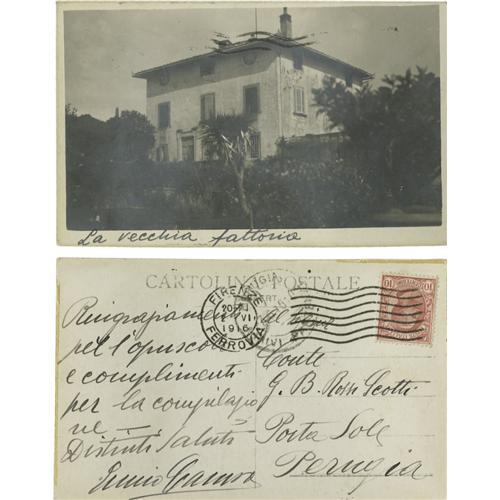 La vecchia fattoria
CARTOLINA POSTALE
FIRENZE
FERROVIA
PERUGIA
10 10
Ringraziamenti
per l'opuscolo
e complimenti
per la compilazio
ne
Distinti saluti
Al Nobil
Conte
G. B. Rossi Scotti
Porta Sole
Perugia